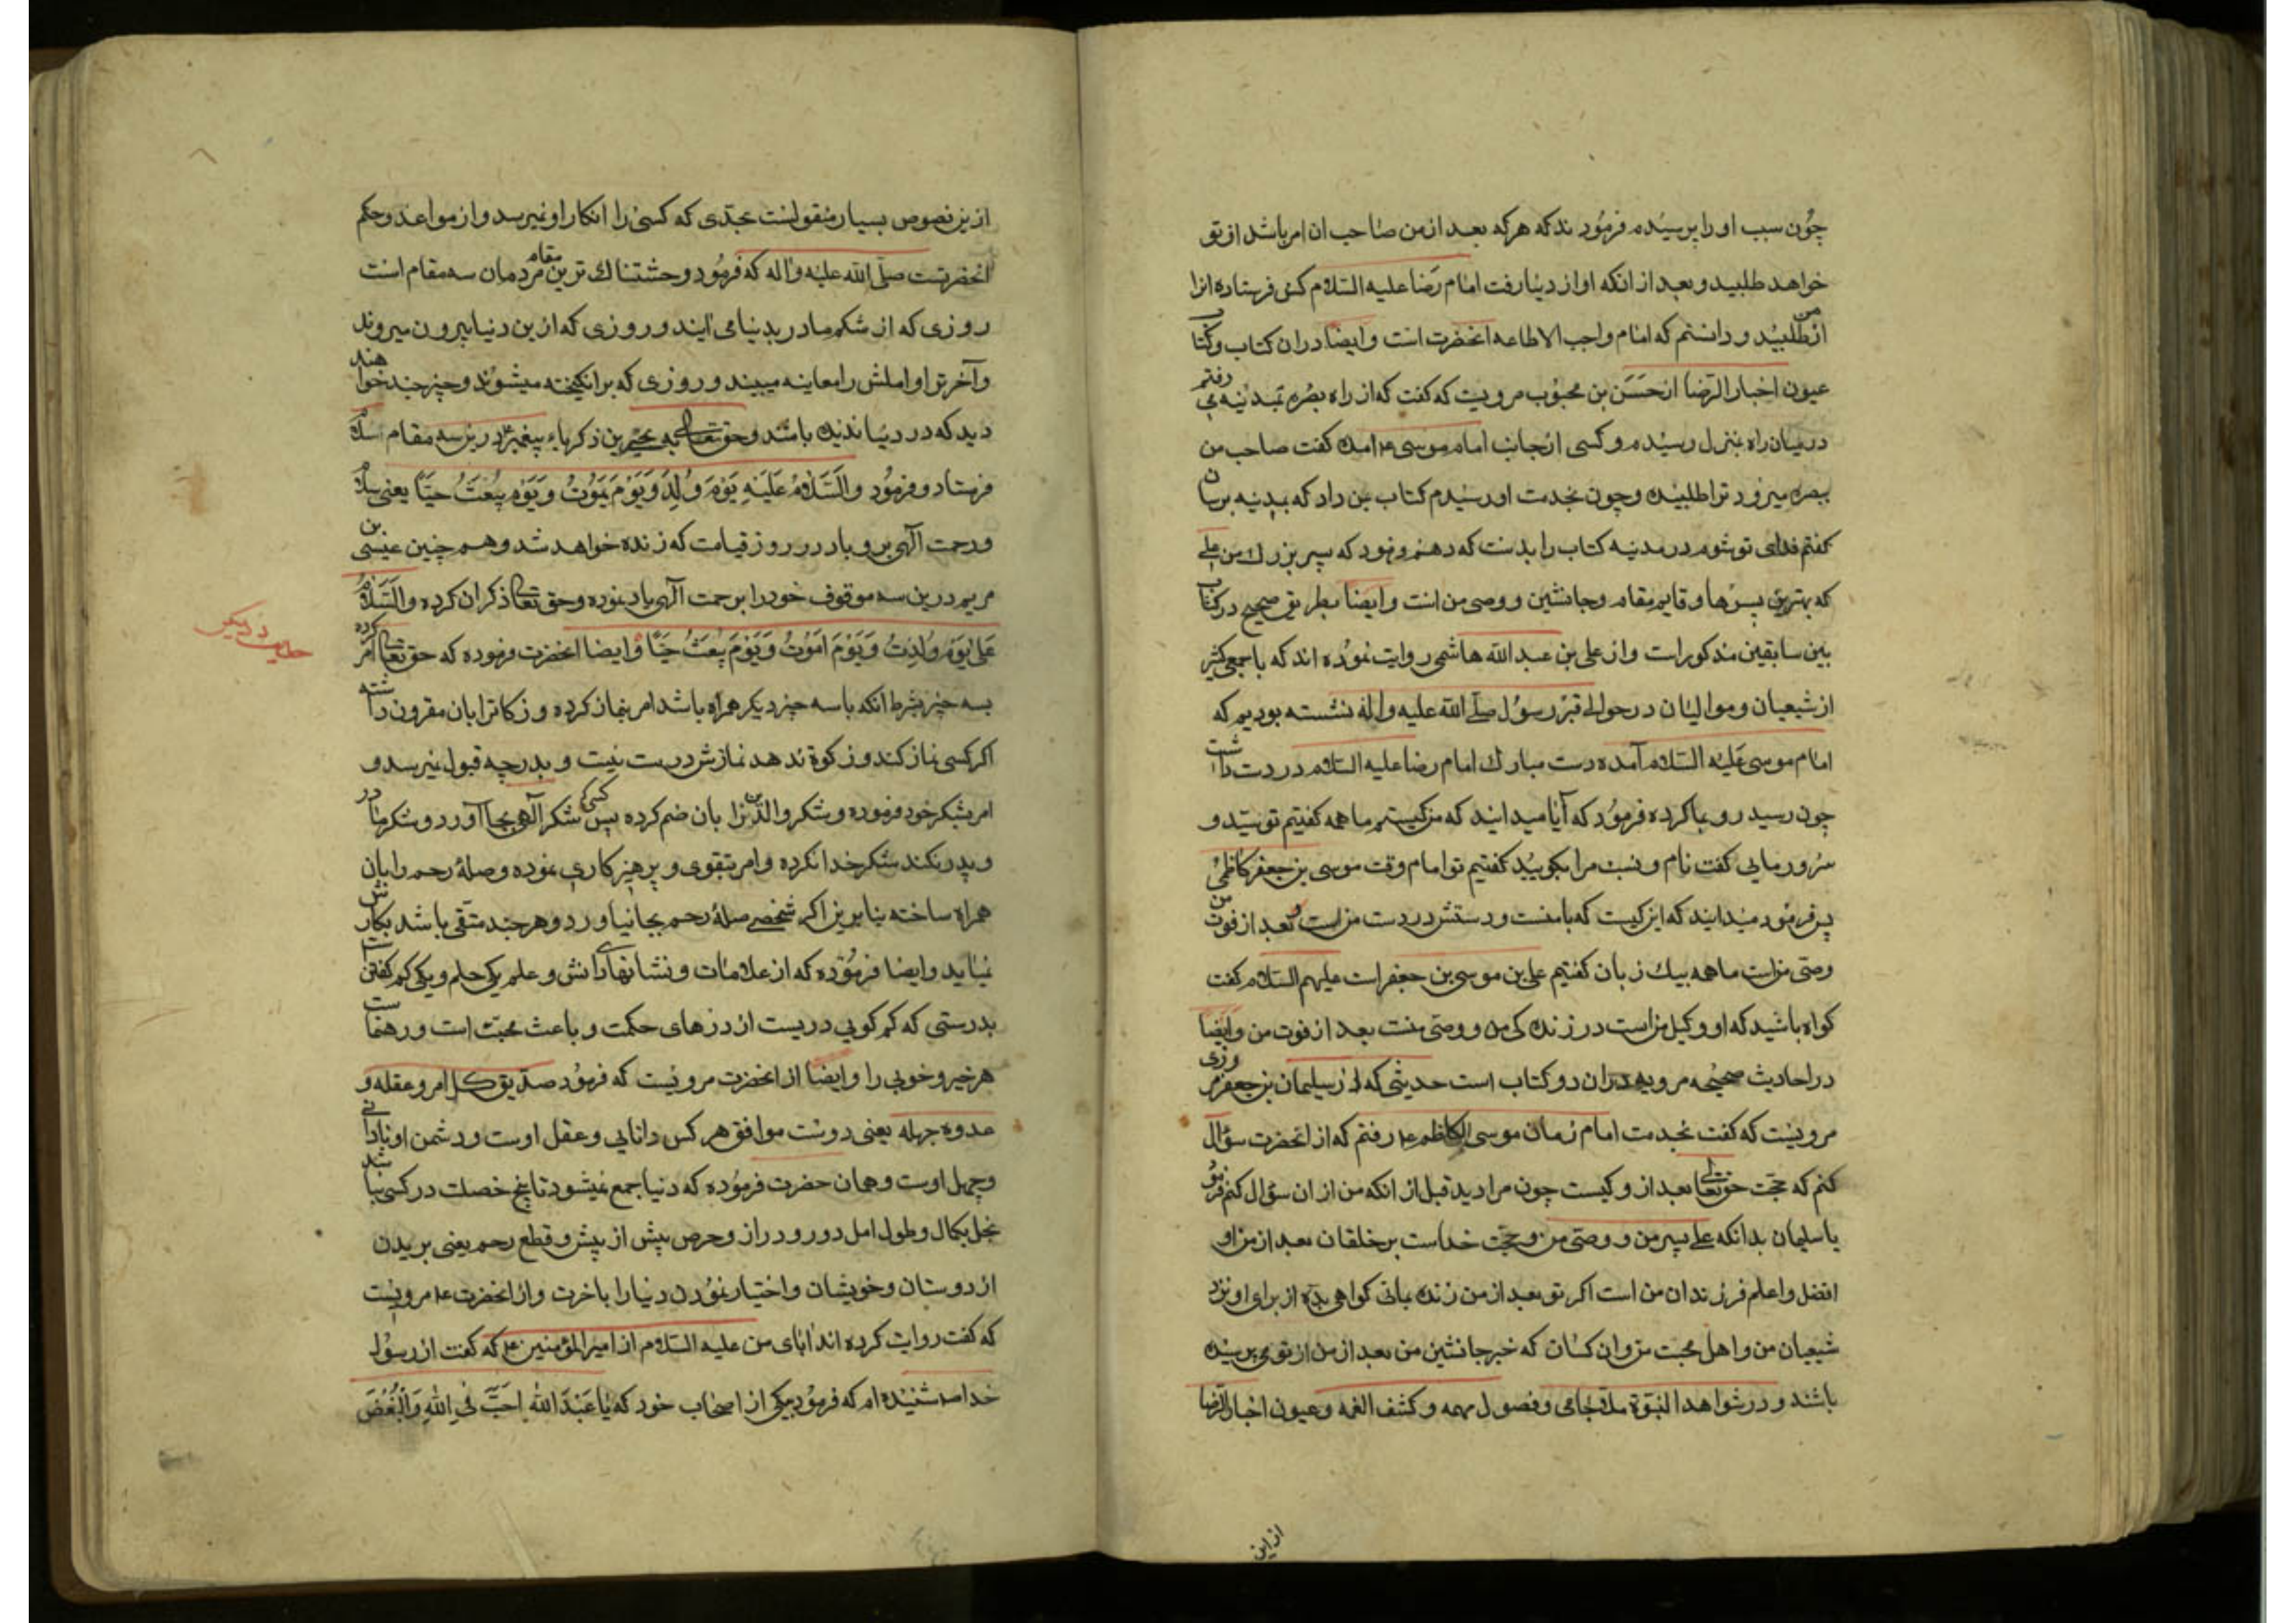 چون سبب او را پرسیدم فرمودند که هر که بعد از من صاحب ان امر باشد از تو
خواهد طلبید و بعد از انکه او از دنیا رفت امام رضا علیه السلام کس فرستاده انرا
از من طلبید و دانستم که امام واجب الاطاعه انحضرت است و ایضا در ان کتاب و کتاب
عیون اخبار الرضا از حسن بن محبوب مرویست که گفت که از راه بصره بمدینه می رفتم
در میان راه بمنزل رسیدم و کسی از جانب امام موسی ع امده گفت صاحب من
ببصره میرود ترا طلبیده و چون بخدمت او رسیدم کتاب بمن داد که بمدینه برسان
گفتم فدای تو شوم در مدینه کتاب را بدست که دهم فرمود که بپسر بزرك من علی
که بهترین پسرها و قایم مقام و جانشین و وصی من است و ایضا بطریق صحیح در کتاب
بین سابقین مذکور است و از علی بن عبد الله هاشمی روایت نموده اند که با جمعی کثیر
از شیعیان و موالیان در حوالی قبر رسول صلی الله علیه واله نشسته بودیم که
امام موسی علیه السلام آمده دست مبارك امام رضا علیه السلام در دست داشت
چون رسید رو بما کرده فرمود که آیا میدانید که من کیستم ما همه گفتیم تو سید و
سرور مایی گفت نام و نسب مرا بگویید گفتیم تو امام وقت موسی بن جعفر کاظمی
پس فرمود میدانید که این کیست که با منست و دستش در دست من است و بعد از فوت من
وصی من است ما همه بیك زبان گفتیم علی بن موسی بن جعفر است علیهم السلام گفت
گواه باشید که او وکیل من است در زندگی من و وصی منست بعد از فوت من و ایضا
در احادیث صحیحه مرویه در ان دو کتاب است حدیثی که از سلیمان بن جعفر مروزی
مرویست که گفت بخدمت امام زمان موسی الکاظم ع رفتم که از انحضرت سؤال
کنم که حجت حق تعالی بعد از و کیست چون مرا دید قبل از انکه من از ان سؤال کنم فرمود
یا سلیمان بدانکه علی پسر من و وصی من و حجت خداست بر خلقان بعد از من او
افضل و اعلم فرزندان من است اگر تو بعد از من زنده بمانی گواهی بده از برای او نزد
شیعیان من و اهل محبت من و ان کسان که خبر جانشین من بعد از من از تو می پرسیده
باشند و در شواهد النبوة ملا جامی و فصول مهمه و کشف الغمه و عیون اخبار الرضا
از این
ازین نصوص بسیار منقولست بحدی که کسی را انکار او نمیرسد و از مواعظ و حکم
انحضرتست صلی الله علیه واله که فرمود وحشتناك ترین مقام مردمان سه مقام است
روزی که از شکم مادر بدنیا می ایند و روزی که ازین دنیا بیرون میروند
و آخرت و اهلش را معاینه میبیند و روزی که برانگیخته میشوند و چیزی چند خواهند
دید که در دنیا ندیده باشند و حق تعالی به یحیی بن زکریاء پیغمبر در ین سه مقام سلام
فرستاد و فرمود والسلام علیه یوم ولد ویوم یموت ویوم یبعث حیا یعنی سلام
و رحمت آلهی برو باد در روز قیامت که زنده خواهد شد و هم چنین عیسی بن
مریم درین سه موقوف خود را برحمت آلهی یاد نموده و حق تعالی ذکر ان کرده والسلام
علی یوم ولدت ویوم اموت ویوم یبعث حیا و ایضا انحضرت فرموده که حق تعالی امر کرده
بسه چیز بشرط انکه با سه چیز دیگر همراه باشد امر بنماز کرده و زکات را بان مقرون داشته
اگر کسی نماز کند و زکوة ندهد نمازش درست نیست و بدرجه قبول نمیرسد و
امر بشکر خود فرموده و شکر والدین را بان ضم کرده پس کسی که شکر آلهی بجا آورد و شکر مادر
و پدر نکند شکر خدا نکرده و امر بتقوی و پرهیزکاری نموده و صلهٔ رحم را بان
همراه ساخته بنا برین اگر شخصی صلهٔ رحم بجا نیاورد و هر چند متقی باشد بکارش
نیاید و ایضا فرموده که از علامات و نشانهای دانش و علم یکی حلم و یکی کم گفتن است
بدرستی که کم گویی دریست از درهای حکمت و باعث محبت است و رهنماست
هر خیر و خوبی را و ایضا از انحضرت مرویست که فرمود صدیق کل امرء عقله و
عدوه جهله یعنی دوست موافق هر کس دانایی و عقل اوست و دشمن او نادانی
و جهل اوست و همان حضرت فرموده که دنیا جمع نمیشود تا پنج خصلت در کسی نباشد
بخل بکمال و طول امل دور و دراز و حرص بیش از پیش و قطع رحم یعنی بریدن
از دوستان و خویشان و اختیار نمودن دنیا را باخرت و از انحضرت ع مرویست
که گفت روایت کرده اند ابای من علیه السلام از امیر المؤمنین ع که گفت از رسول
خدا ص شنیده ام که فرمود بیکی از اصحاب خود که یا عبد الله احب فی الله وابغض
حدیث دیگر